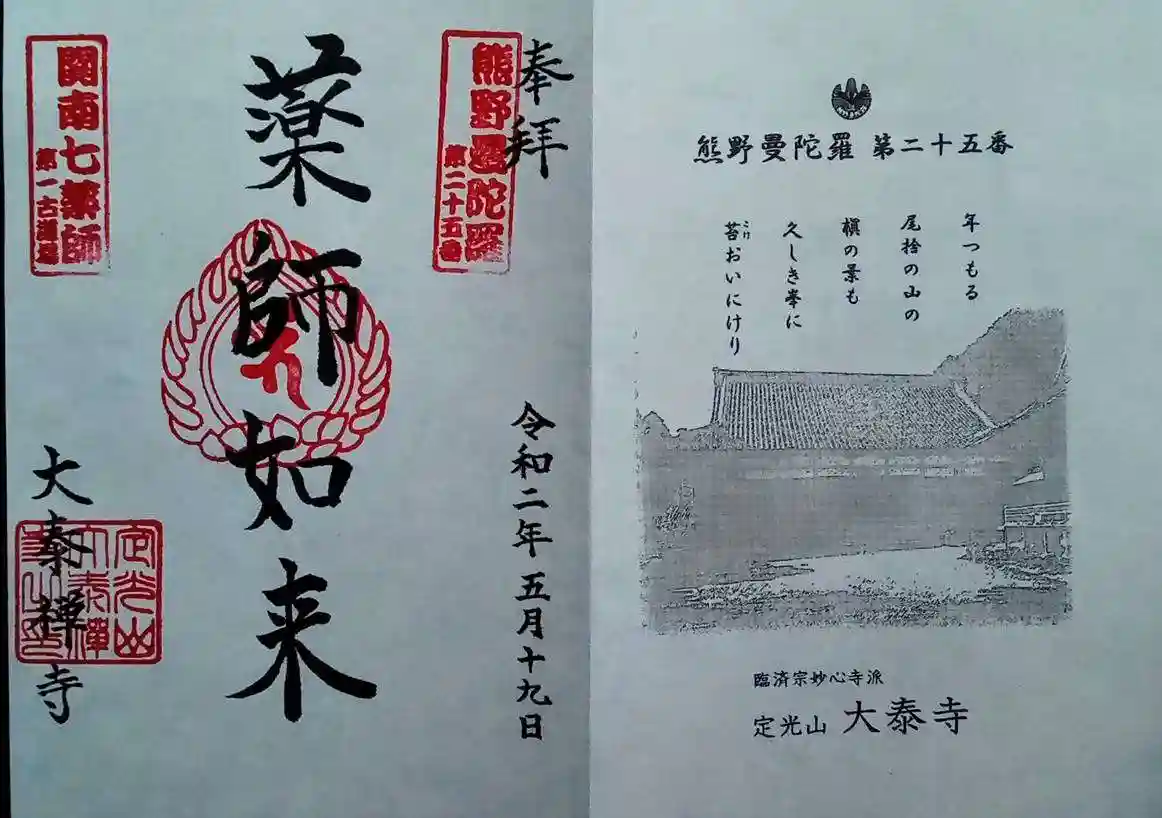 奉拝
令和二年五月十九日
熊野曼陀羅
第二十五番
薬師如来
関南七薬師
大泰禪寺
定光山
大泰禪
寺之印
熊野曼陀羅 第二十五番
年つもる
尾捨の山の
槇の景も
久しき峯に
苔おいにけり
こけ
臨済宗妙心寺派
定光山 大泰寺